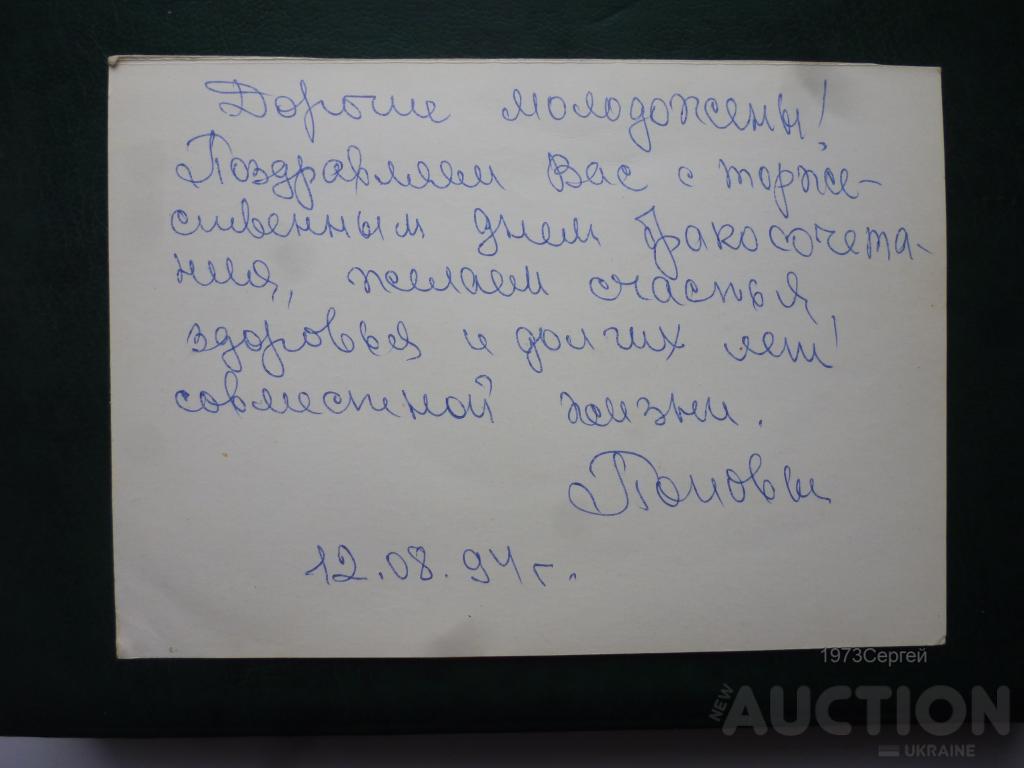 Дорогие молодожены!
Поздравляем Вас с торже-
ственным днем бракосочета-
ния, желаем счастья,
здоровья и долгих лет
совместной жизни.
Поповы
12.08.94г.
1973Сергей
NEW AUCTION
UKRAINE